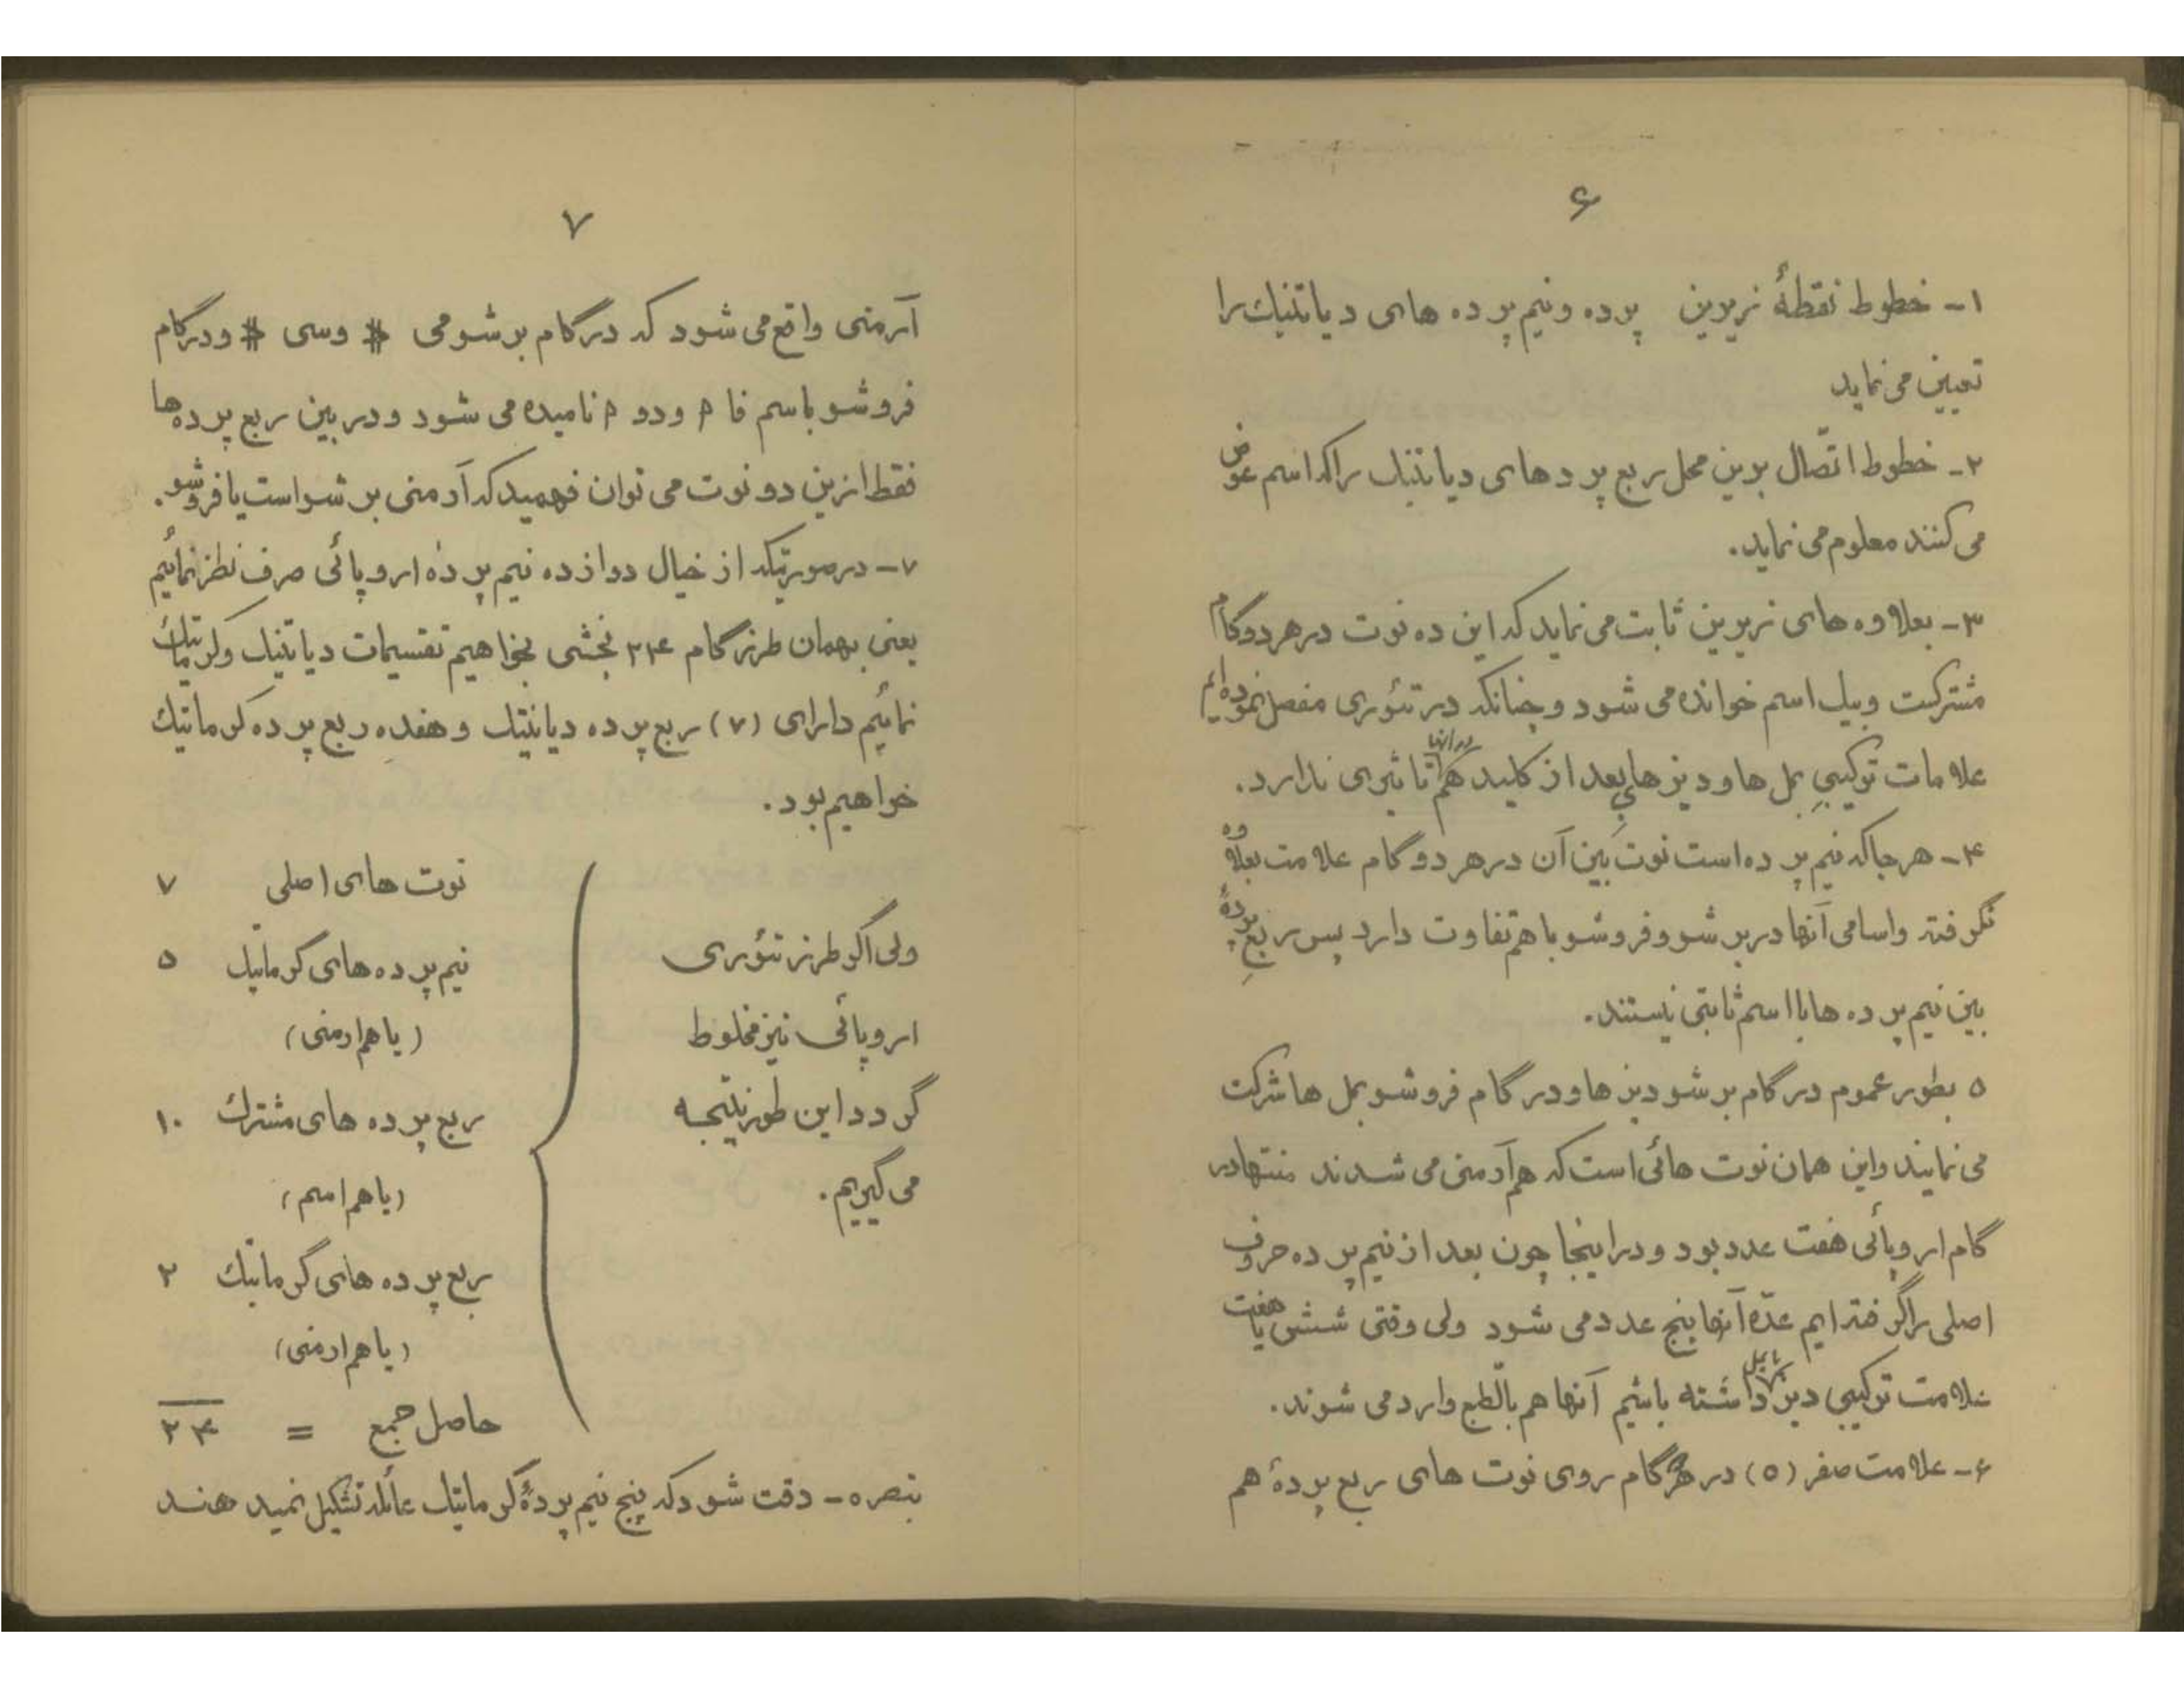 ۶
۱- خطوط نقطهٔ زیرین پرده و نیم پرده های دیاتنیك را
تعیین می نماید
۲- خطوط اتّصال برین محل ربع پردهای دیاتنیك را كه اسم عوض
می کنند معلوم می نماید.
۳- بعلاوه های زیرین ثابت می نماید که این ده نوت در هر دو گام
مشترکست و بیك اسم خوانده می شود و چنانکه در تئوری مفصل نموده ایم
علامات ترکیبی بمل ها و دیزهای بعد از کلید هم در آنها تاثیری ندارد.
۴- هر جا که نیم پرده است نوت بین آن در هر دو گام علامت بعلاوه
نگرفته و اسامی آنها در برشو و فروشو با هم تفاوت دارد پس ربع پردهٔ
بین نیم پرده ها با اسم ثابتی نیستند.
۵ بطور عموم در گام برشو دیزها و در گام فروشو بمل ها شرکت
می نمایند و این همان نوت هائی است که هم آرمنی می شدند منتها در
گام اروپائی هفت عدد بود و در اینجا چون بعد از نیم پرده حروف
اصلی را گرفته ایم عدّه آنها پنج عدد می شود ولی وقتی شش یا هفت
علامت ترکیبی دیز یا بمل داشته باشیم آنها هم بالطبع وارد می شوند.
۶- علامت صفر (o) در هر گام روی نوت های ربع پردهٔ هم
۷
آرمنی واقع می شود که در گام برشو می # و سی # و در گام
فروشو باسم فا م و دو م نامیده می شود و در بین ربع پرده ها
فقط ازین دو نوت می توان فهمید که آرمنی برشو است یا فروشو.
۷- در صورتیکه از خیال دوازده نیم پردهٔ اروپائی صرف نظر نمائیم
یعنی بهمان طرز گام ۲۴ بخشی بخواهیم تقسیمات دیاتنیك و کرماتیك
نمائیم دارای (۷) ربع پرده دیاتنیك و هفده ربع پرده کرماتیك
خواهیم بود.
ولی اگر طرز تئوری
اروپائی نیز مخلوط
گردد این طور نتیجه
می گیریم.
نوت های اصلی ۷
نیم پرده های کرماتیك ۵
(یا هم ارمنی)
ربع پرده های مشترك ۱۰
(یا هم اسم)
ربع پرده های کرماتیك ۲
(یا هم ارمنی)
حاصل جمع = ۲۴
تبصره - دقت شود که پنج نیم پردهٔ کرماتیك تشکیل نمیدهند